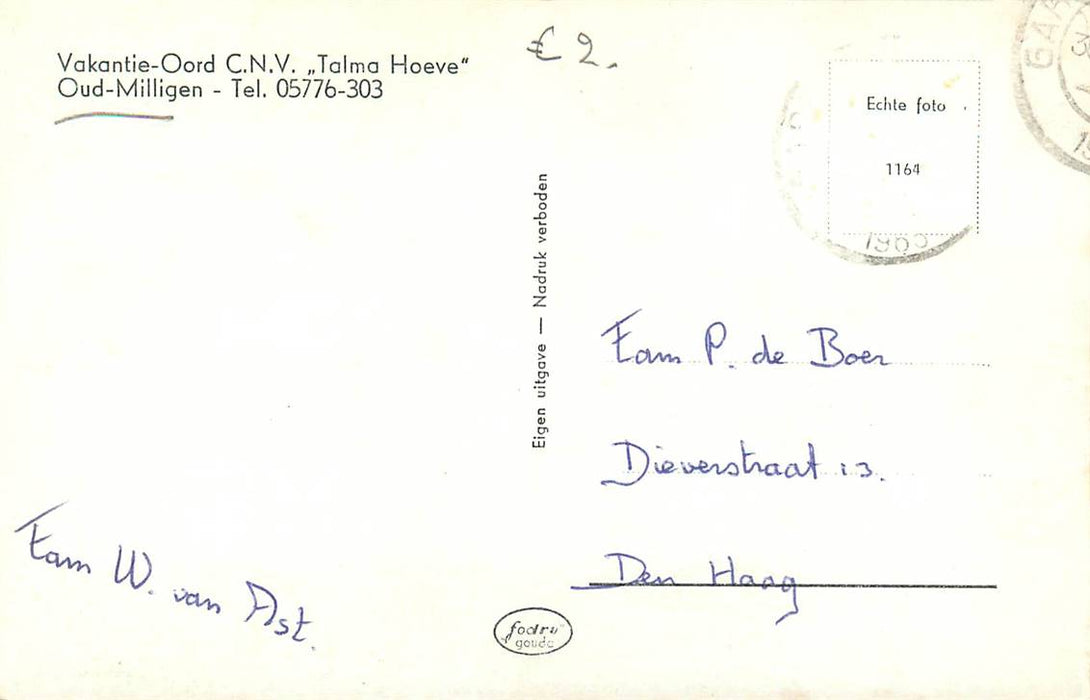 Vakantie-Oord C.N.V. „Talma Hoeve“
Oud-Milligen - Tel. 05776-303
€ 2.
Echte foto
1164
Eigen uitgave — Nadruk verboden
Fam P. de Boer
Dieverstraat 13.
Den Haag
Fam W. van Ast.
gouda